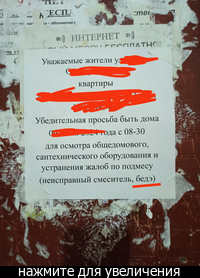 ЕСПЛ
ИНТЕРНЕТ
Уважаемые жители у
квартиры
Убедительная просьба быть дома
с 08-30
для осмотра общедомового,
сантехнического оборудования и
устранения жалоб по подмесу
(неисправный смеситель, бедэ)
нажмите для увеличения